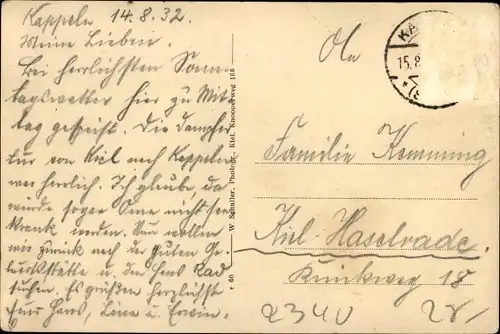 Kappeln 14.8.32.
Meine Lieben.
Bei herrlichsten Sonn-
tagswetter hier zu Mit-
tag gespeist. Die Dampfer-
tur von Kiel nach Kappeln
war herrlich. Ich glaube, da
würde sogar Oma nicht see-
krank werden. Nun wollen
wir zurück nach der guten Ge-
u. das Haus Rad
suchen. Es grüßen herzlichst
Euer Hans, Lina u. Erwin.
r 60 W. Schaller, Photogr., Kiel, Knooperweg 168
15.8
Familie Kemming
Kiel-Hasselrade.
18
2340